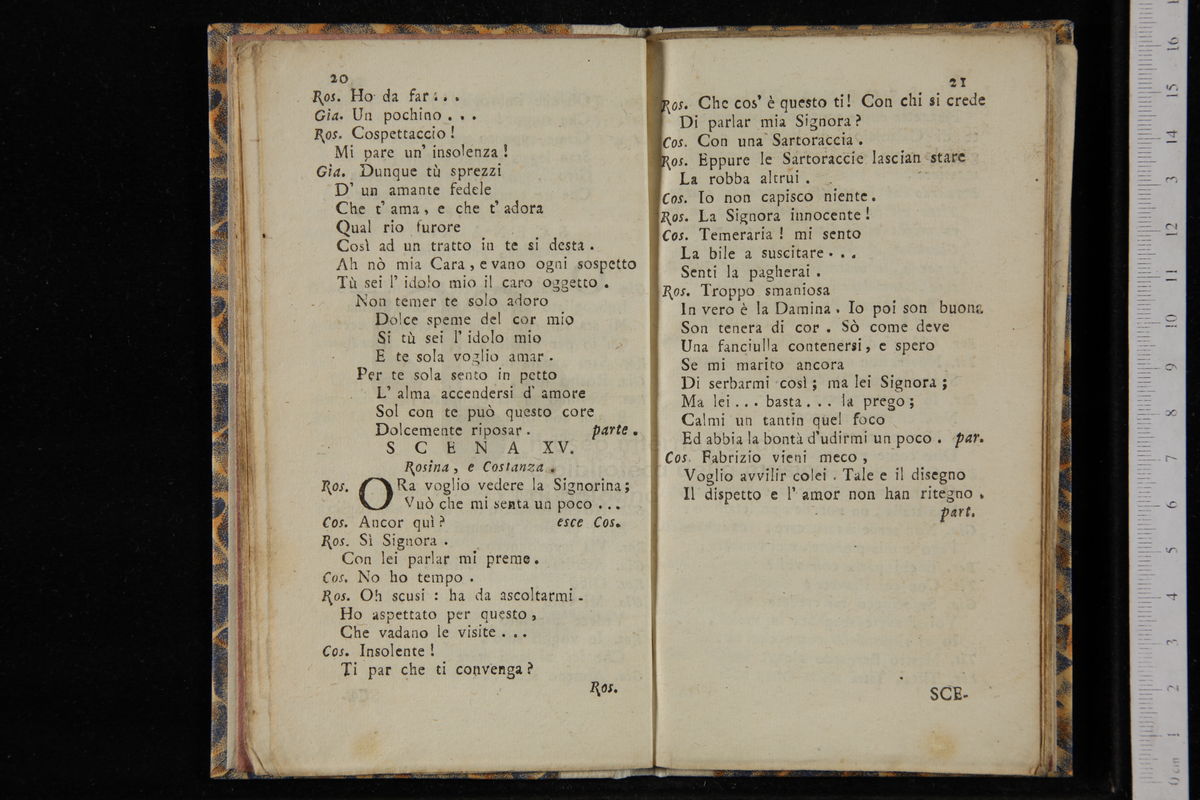 20
Ros. Ho da far...
Gia. Un pochino...
Ros. Cospettaccio!
Mi pare un' insolenza!
Gia. Dunque tù sprezzi
D' un amante fedele
Che t' ama, e che t' adora
Qual rio furore
Così ad un tratto in te si desta.
Ah nò mia Cara, e vano ogni sospetto
Tù sei l' idolo mio il caro oggetto.
Non temer te solo adoro
Dolce speme del cor mio
Si tù sei l' idolo mio
E te sola voglio amar.
Per te sola sento in petto
L' alma accendersi d' amore
Sol con te può questo core
Dolcemente riposar. parte.
SCENA XV.
Rosina, e Costanza.
Ros. ORa voglio vedere la Signorina;
Vuò che mi senta un poco...
Cos. Ancor quì? esce Cos.
Ros. Sì Signora.
Con lei parlar mi preme.
Cos. No ho tempo.
Ros. Oh scusi: ha da ascoltarmi.
Ho aspettato per questo,
Che vadano le visite...
Cos. Insolente!
Ti par che ti convenga?
Ros.
21
Ros. Che cos' è questo ti! Con chi si crede
Di parlar mia Signora?
Cos. Con una Sartoraccia.
Ros. Eppure le Sartoraccie lascian stare
La robba altrui.
Cos. Io non capisco niente.
Ros. La Signora innocente!
Cos. Temeraria! mi sento
La bile a suscitare...
Senti la pagherai.
Ros. Troppo smaniosa
In vero è la Damina. Io poi son buona
Son tenera di cor. Sò come deve
Una fanciulla contenersi, e spero
Se mi marito ancora
Di serbarmi così; ma lei Signora;
Ma lei... basta... la prego;
Calmi un tantin quel foco
Ed abbia la bontà d'udirmi un poco. par.
Cos. Fabrizio vieni meco,
Voglio avvilir colei. Tale e il disegno
Il dispetto e l' amor non han ritegno.
part.
SCE-
0 cm 1 2 3 4 5 6 7 8 9 10 11 12 3 14 15 16